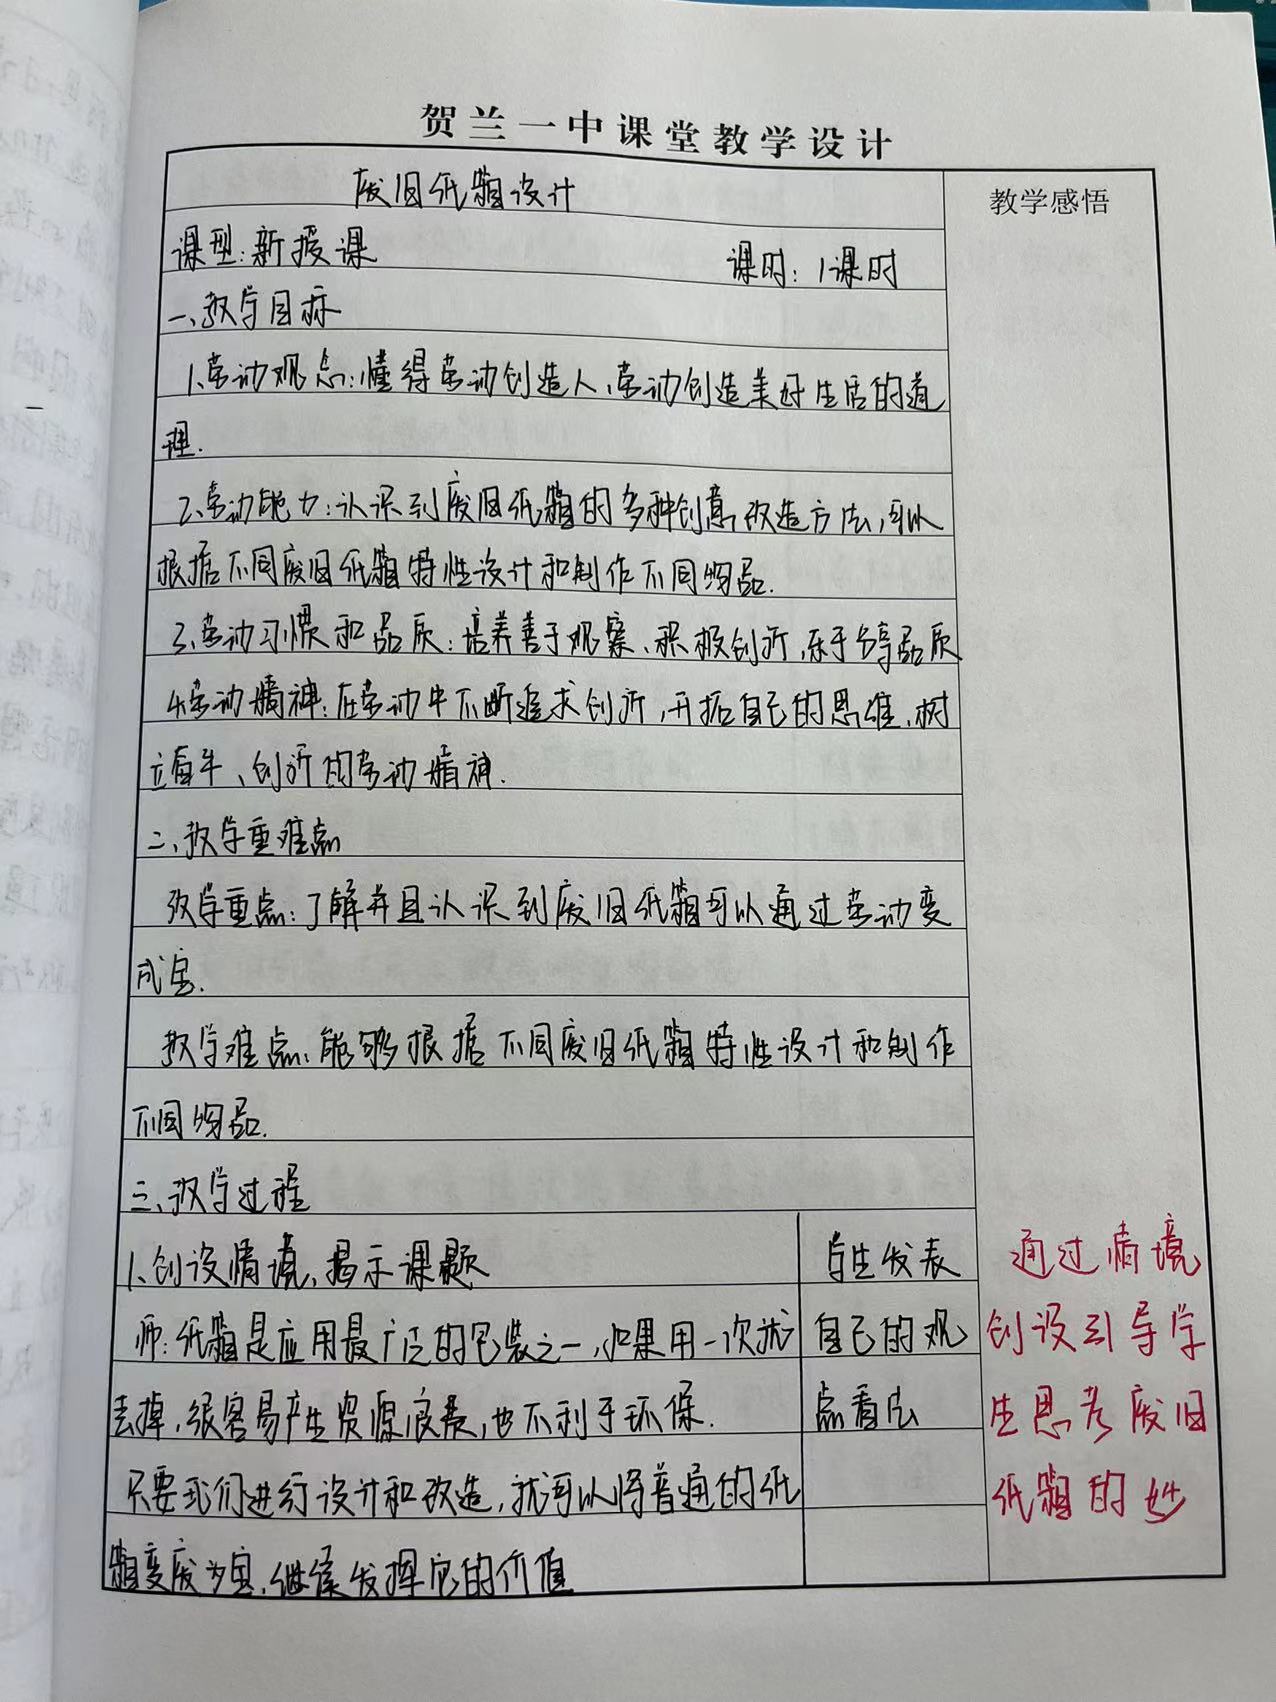 贺兰一中课堂教学设计
废旧纸箱设计
教学感悟
课型:新授课 课时:1课时
一、教学目标
1、劳动观念:懂得劳动创造人、劳动创造美好生活的道
理.
2、劳动能力:认识到废旧纸箱的多种创意改造方法,可以
根据不同废旧纸箱特性设计和制作不同物品.
3、劳动习惯和品质:培养善于观察、积极创新、乐于分享品质
4、劳动精神:在劳动中不断追求创新,开拓自己的思维,树
立奋斗、创新的劳动精神.
二、教学重难点
教学重点:了解并且认识到废旧纸箱可以通过劳动变
成宝.
教学难点:能够根据不同废旧纸箱特性设计和制作
不同物品.
三、教学过程
1、创设情境,揭示课题
师:纸箱是应用最广泛的包装之一,如果用一次就
丢掉,很容易产生资源浪费,也不利于环保.
只要我们进行设计和改造,就可以将普通的纸
箱变废为宝,继续发挥它的价值
学生发表
自己的观
点看法
通过情境
创设引导学
生思考废旧
纸箱的妙